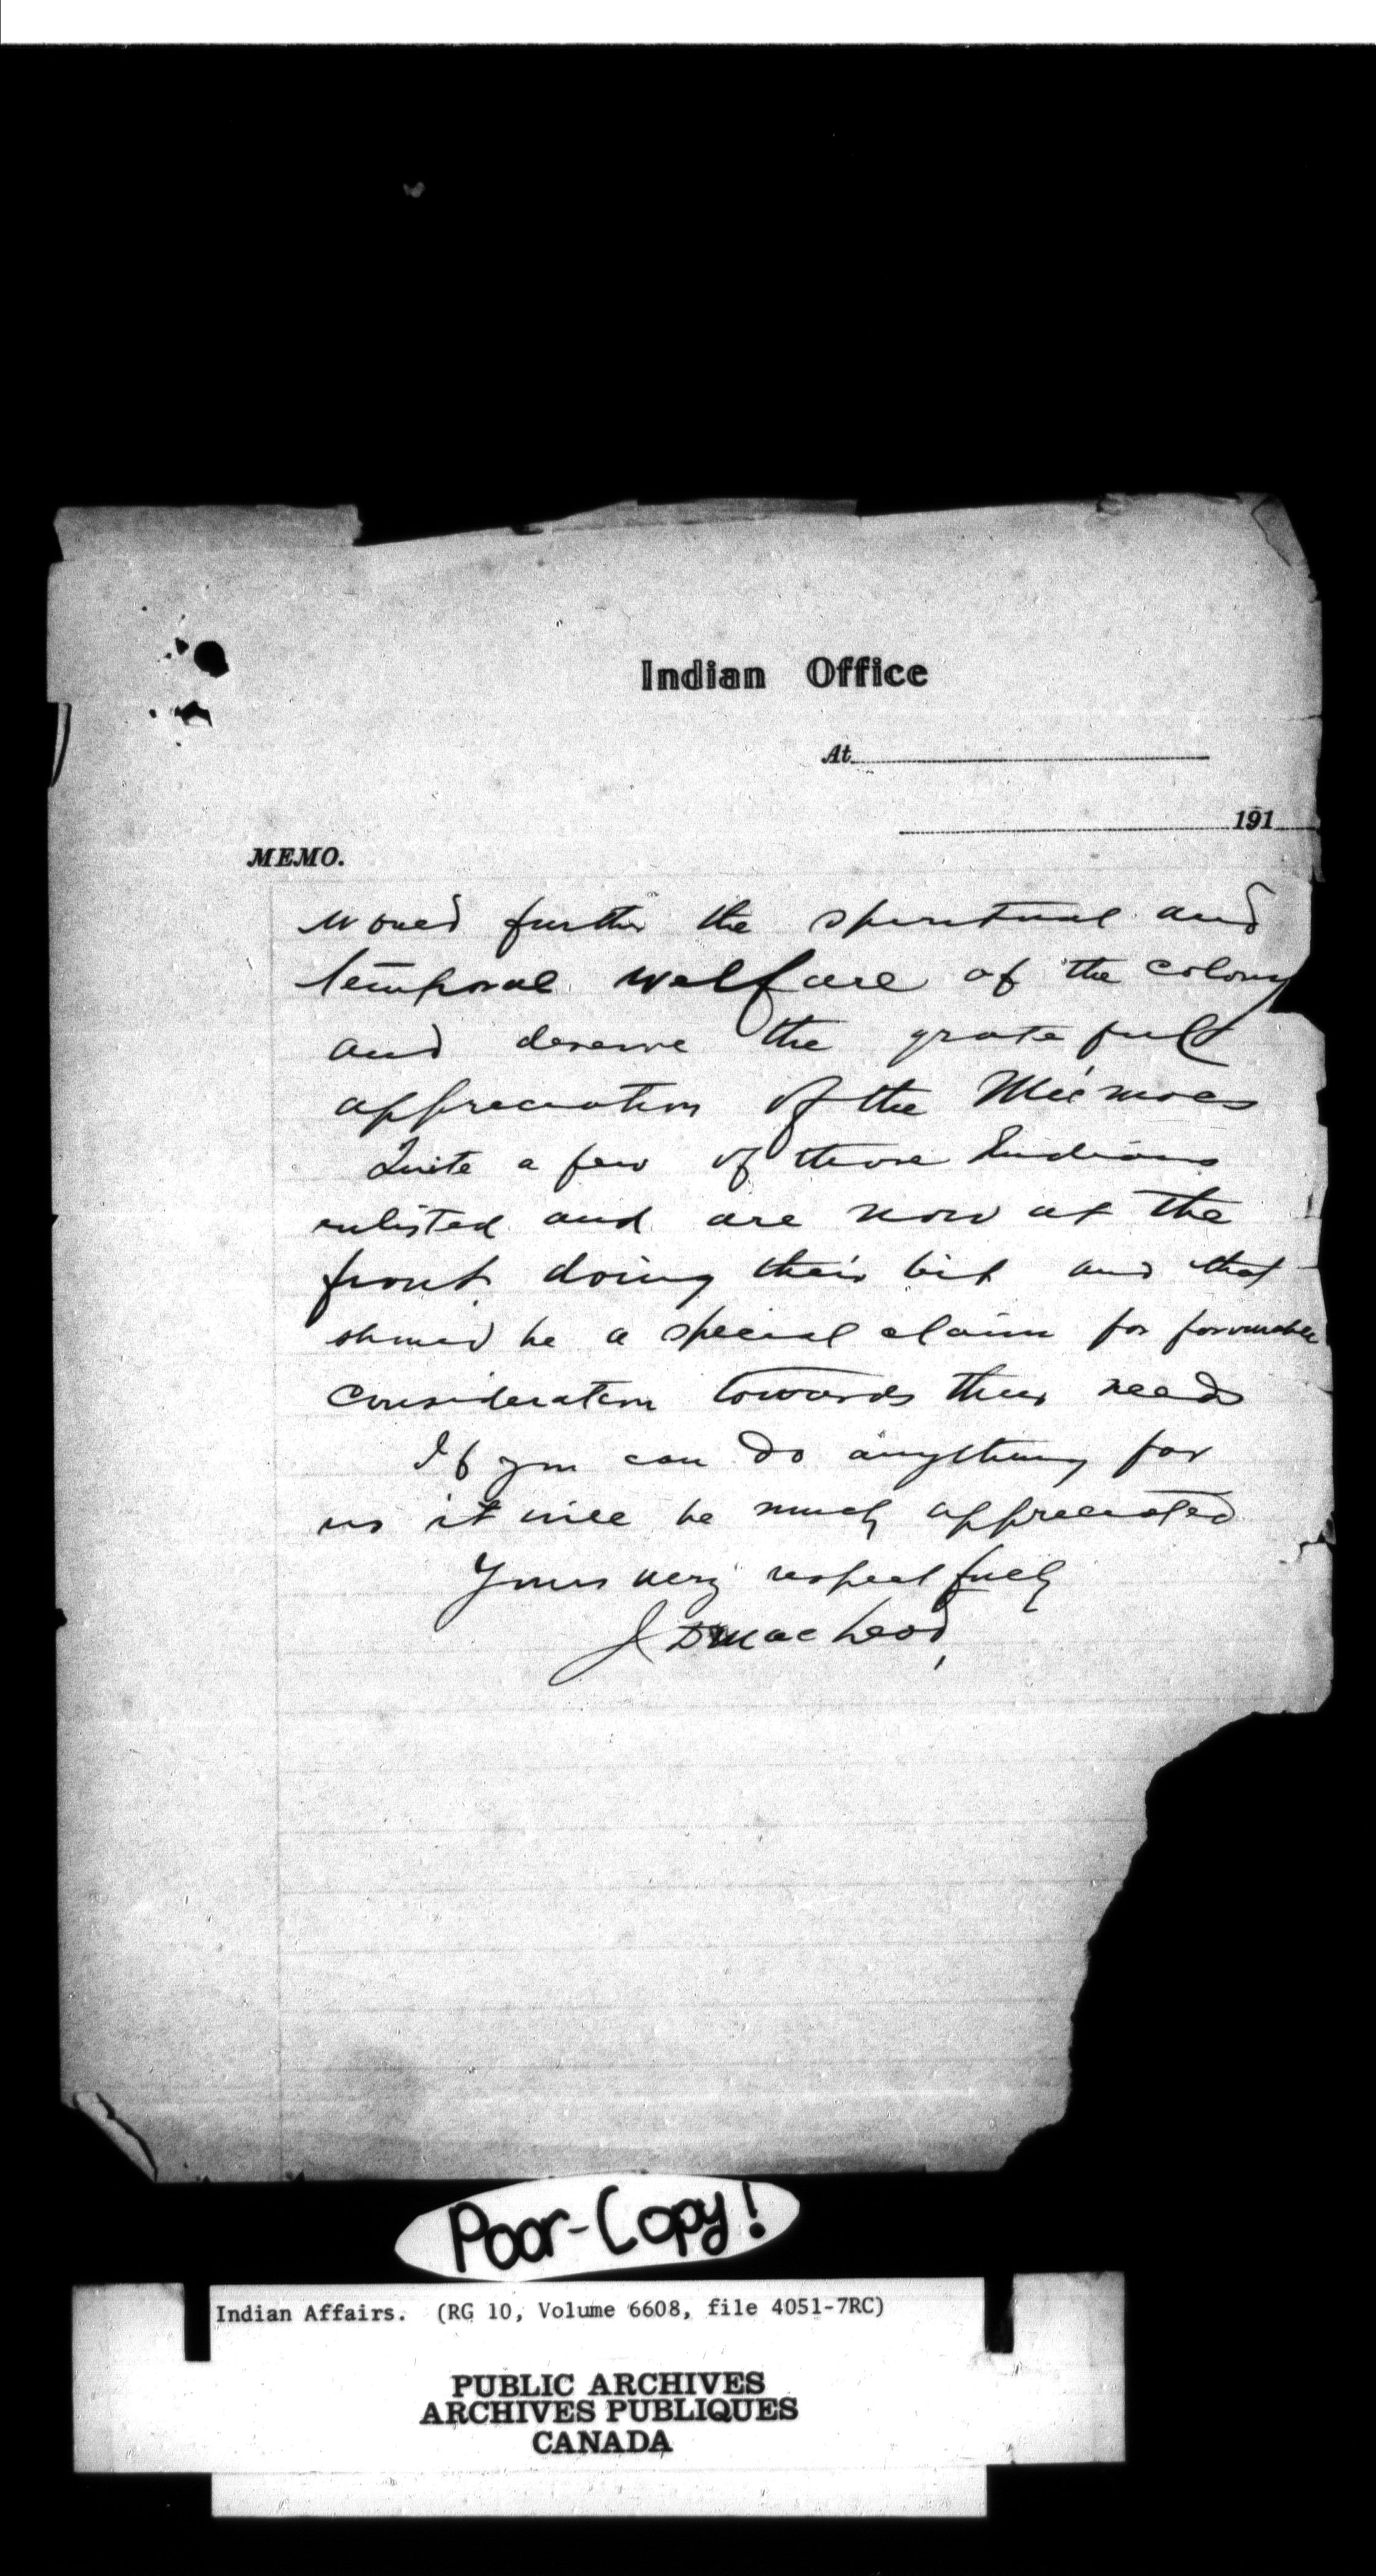 Indian Office
At
191
MEMO.
would further the spiritual and
temporal welfare of the colony
and deserve the grateful
appreciation of the Micmacs
Quite a few of those Indians
enlisted and are now at the
front doing their bit and that
should be a special claim for favourable
consideration towards their needs
If you can do anything for
us it will be much appreciated
Yours very respectfully
J D MacLeod,
Poor-Copy!
Indian Affairs. (RG 10, Volume 6608, file 4051-7RC)
PUBLIC ARCHIVES
ARCHIVES PUBLIQUES
CANADA